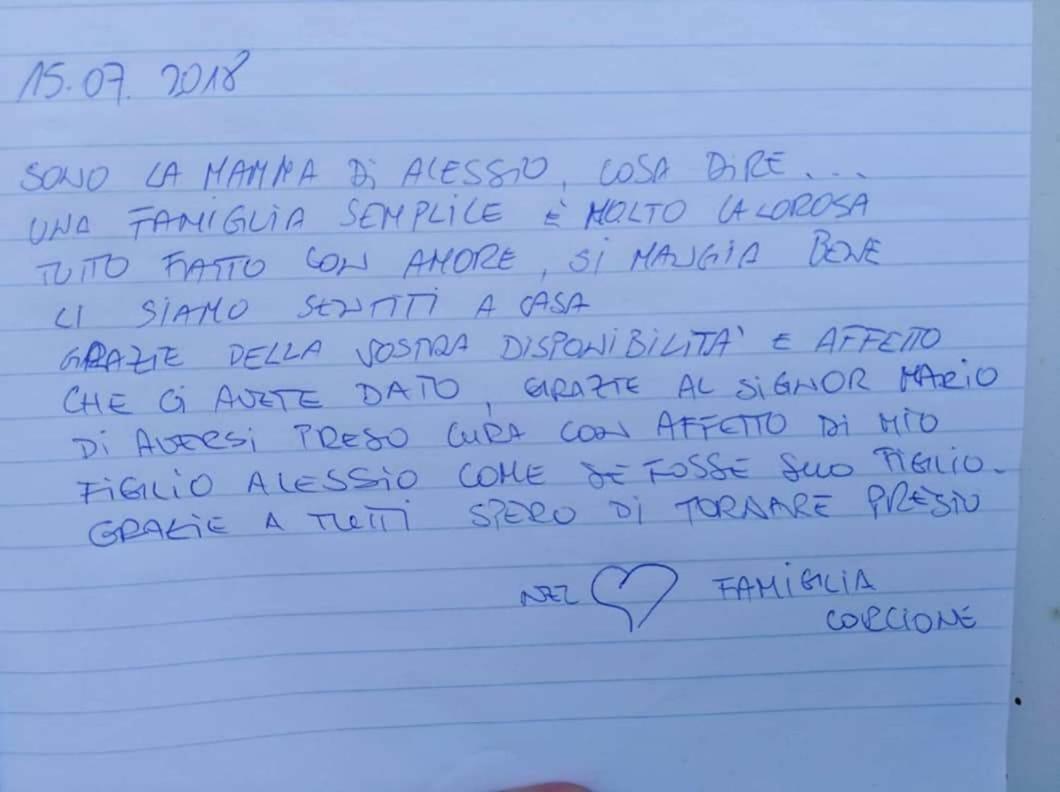 15.07.2018
SONO LA MAMMA Di ALESSIO, COSA DIRE...
UNA FAMIGLIA SEMPLICE È MOLTO CALOROSA
TUTTO FATTO CON AMORE, Si MANGIA BENE
CI SIAMO SENTITI A CASA
GRAZIE DELLA VOSTRA DISPONIBILITA' E AFFETTO
CHE Ci AVETE DATO, GRAZIE AL SIGNOR MARIO
Di AVERSI PRESO CURA CON AFFETTO Di MIO
FIGLIO ALESSIO COME SE FOSSE SUO FIGLIO.
GRAZIE A TUTTI SPERO Di TORNARE PRESTO
NEL ♡ FAMIGLIA
CORCIONE